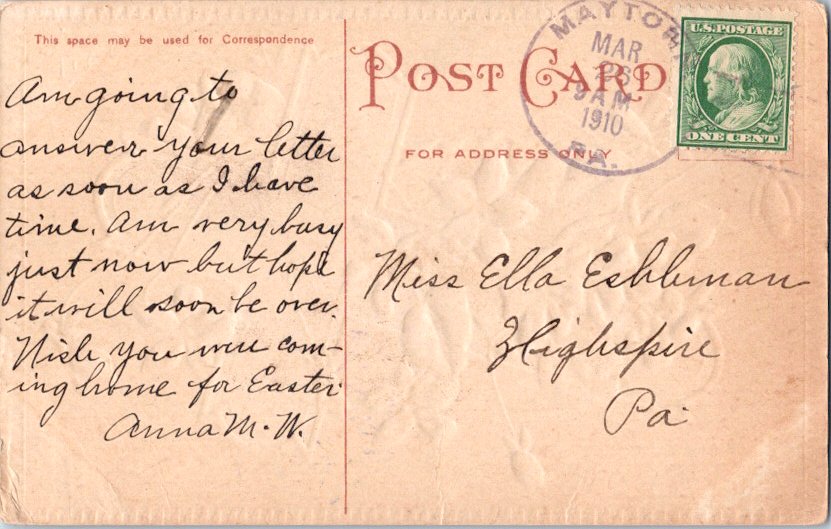 This space may be used for Correspondence
Am going to
answer your letter
as soon as I have
time. Am very busy
just now but hope
it will soon be over.
Wish you were com-
ing home for Easter
Anna M. W.
POST CARD
FOR ADDRESS ONLY
MAYTOWN
MAR
9 AM
1910
PA.
U.S. POSTAGE
ONE CENT
Miss Ella Eshbman
Highspire
Pa.